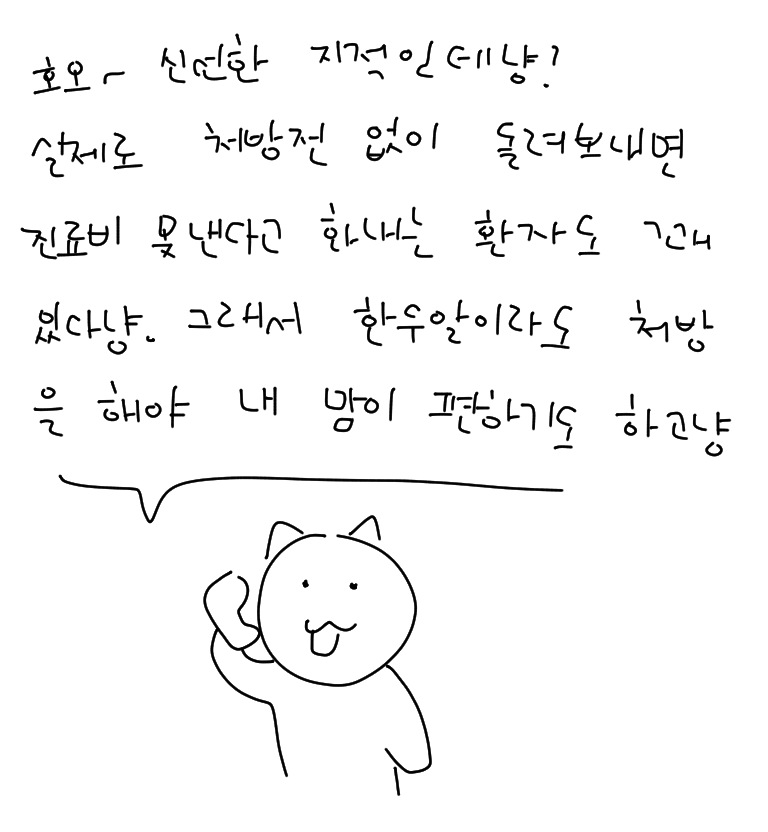 호오~ 신선한 지적인데냥?
실제로 처방전 없이 돌려보내면
진료비 못낸다고 화내는 환자도 꽤
있다냥. 그래서 한두알이라도 처방
을 해야 내 맘이 편하기도 하고냥